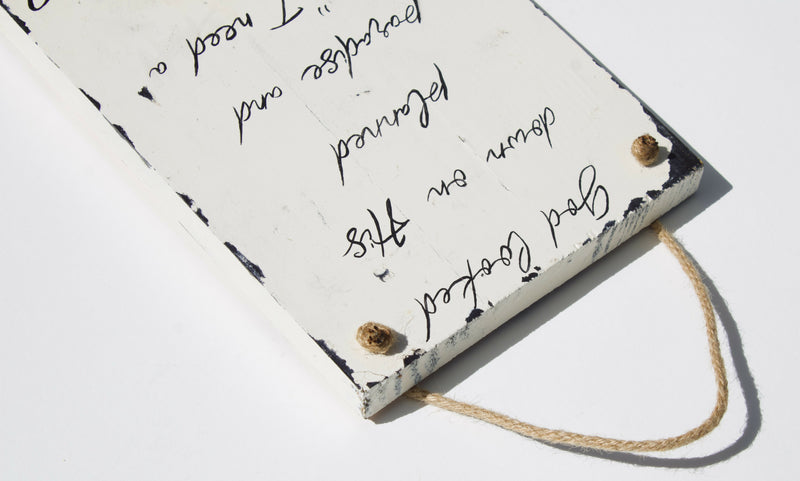 God looked
down on His
planned
paradise and
"I need a